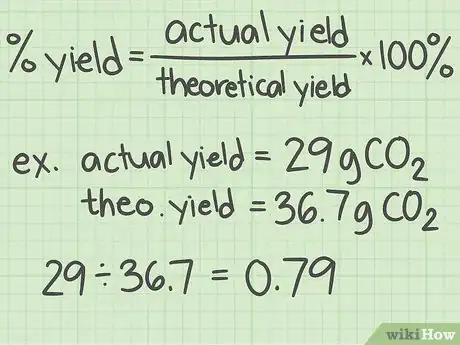 % yield = actual yield / theoretical yield × 100%
ex. actual yield = 29 g CO₂
theo. yield = 36.7 g CO₂
29 ÷ 36.7 = 0.79
wikiHow